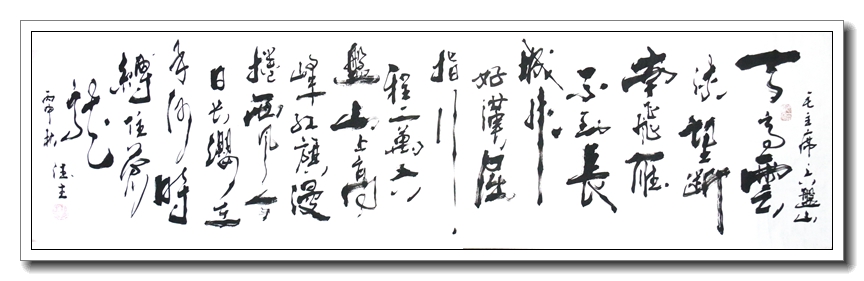 毛主席六盤山
天高雲
淡望斷
南飛雁
不到長
城非
好漢屈
指行
程二萬六
盤山上高
峰紅旗漫
捲西風今
日長纓在
手何時
縛住蒼
龍
丙申秋